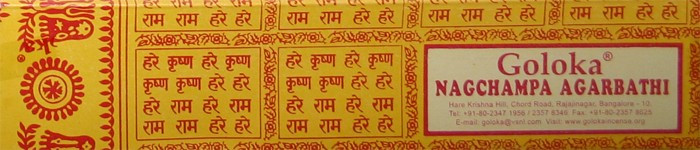 राम राम हरे हरे
राम राम हरे हरे
राम राम हरे हरे
हरे कृष्ण हरे कृष्ण
कृष्ण कृष्ण हरे हरे
हरे राम हरे राम
राम राम हरे हरे
हरे कृष्ण हरे कृष्ण
कृष्ण कृष्ण हरे हरे
हरे राम हरे राम
राम राम हरे हरे
Goloka®
NAGCHAMPA AGARBATHI
Hare Krishna Hill, Chord Road, Rajajinagar, Bangalore - 10.
Tel: +91-80-2347 1956 / 2357 8346. Fax: +91-80-2357 8625
E-mail: goloka@vsnl.com Visit: www.golokaincense.org